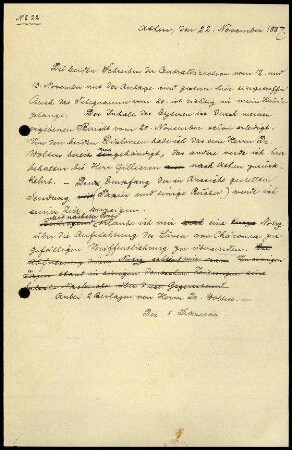 Nº 22
Athen, den 22. November 1887.
Die beiden Schreiben der Centraldirection vom 12. und
13. November mit der Anlage sind gestern hier eingetroffen.
Auch das Telegramm vom 20. ist richtig in meine Hände
gelangt. Der Inhalt des letzteren ist durch meinen
ergebenen Bericht vom 20. November schon erledigt.
Von den beiden Diplomen habe ich das eine Herrn Dr.
Wolters bereits eingehändigt, das andere werde ich hier
behalten bis Herr Gilliéron nach Athen zurück
kehrt. — Den Empfang der in Aussicht gestellten
Sendung (Papier und einige Bücher) werde ich
seiner Zeit anzeigen.
erlaube ich mir eine Notiz
über die Aufstellung des Löwen von Chäronea zu
gefälliger Veröffentlichung zu übersenden.
Anbei 2 Beilagen von Herrn Dr. Wolters.
Der I. Secretar